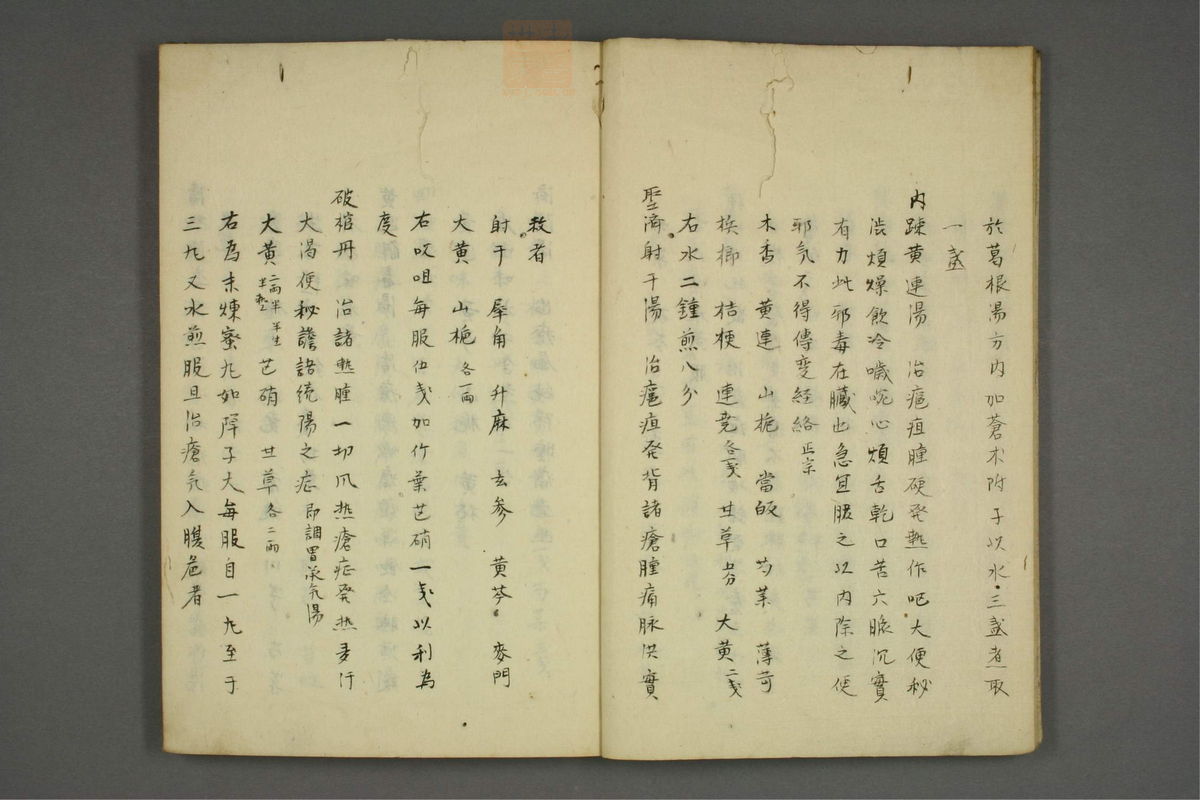 於葛根湯方内加蒼术附子以水三盞煮取
一盞
内踈黄連湯　治癰疽腫硬発熱作呕大便秘
渋煩燥飲冷噦啘心煩舌乾口苦六脉沉實
有力此邪毒在臓也急宜䟽之以内除之使
邪気不得傳变経絡正宗
木香　黄連　山梔　當皈　芍薬　薄苛
梹榔　桔梗　連尭各一戔　甘草五分　大黄二戔
右水二鍾煎八分
聖濟射干湯　治癰疽発背諸瘡腫痛脉洪實
数者
射干　犀角　升麻　玄参　黄芩　麥門
大黄　山梔各一両
右㕮咀每服伍戔加竹葉芒硝一戔以利為
度
破棺丹　治諸熱腫一切風热瘡症発热多汗
大渇便秘譫語結陽之症即調胃承気湯
大黄二両半半生半熟　芒硝　甘草各二両
右為末煉蜜丸如弾子大每服目一丸至于
三丸又水煎服且治瘡気入腹危者